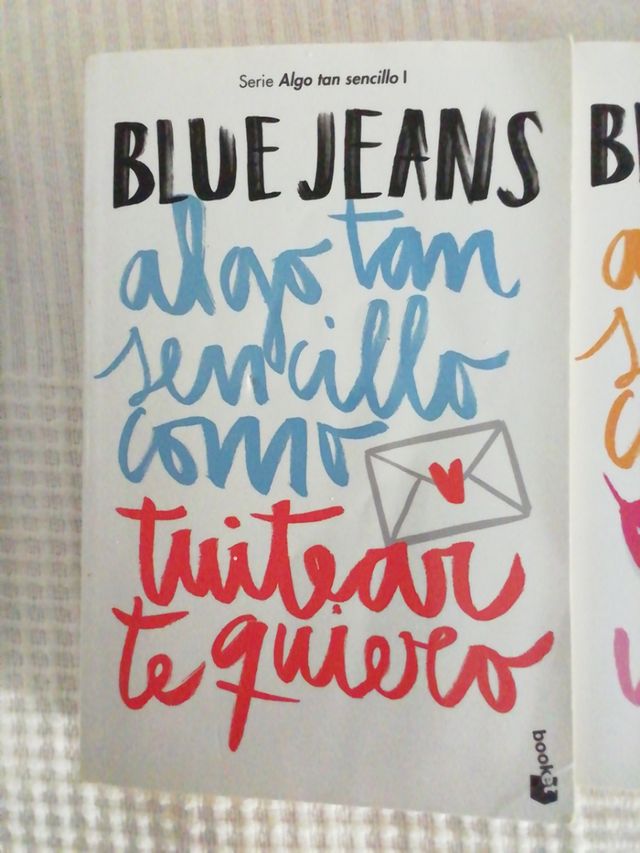 Serie Algo tan sencillo I
BLUE JEANS
algo tan
sencillo
como
tuitear
te quiero
booket